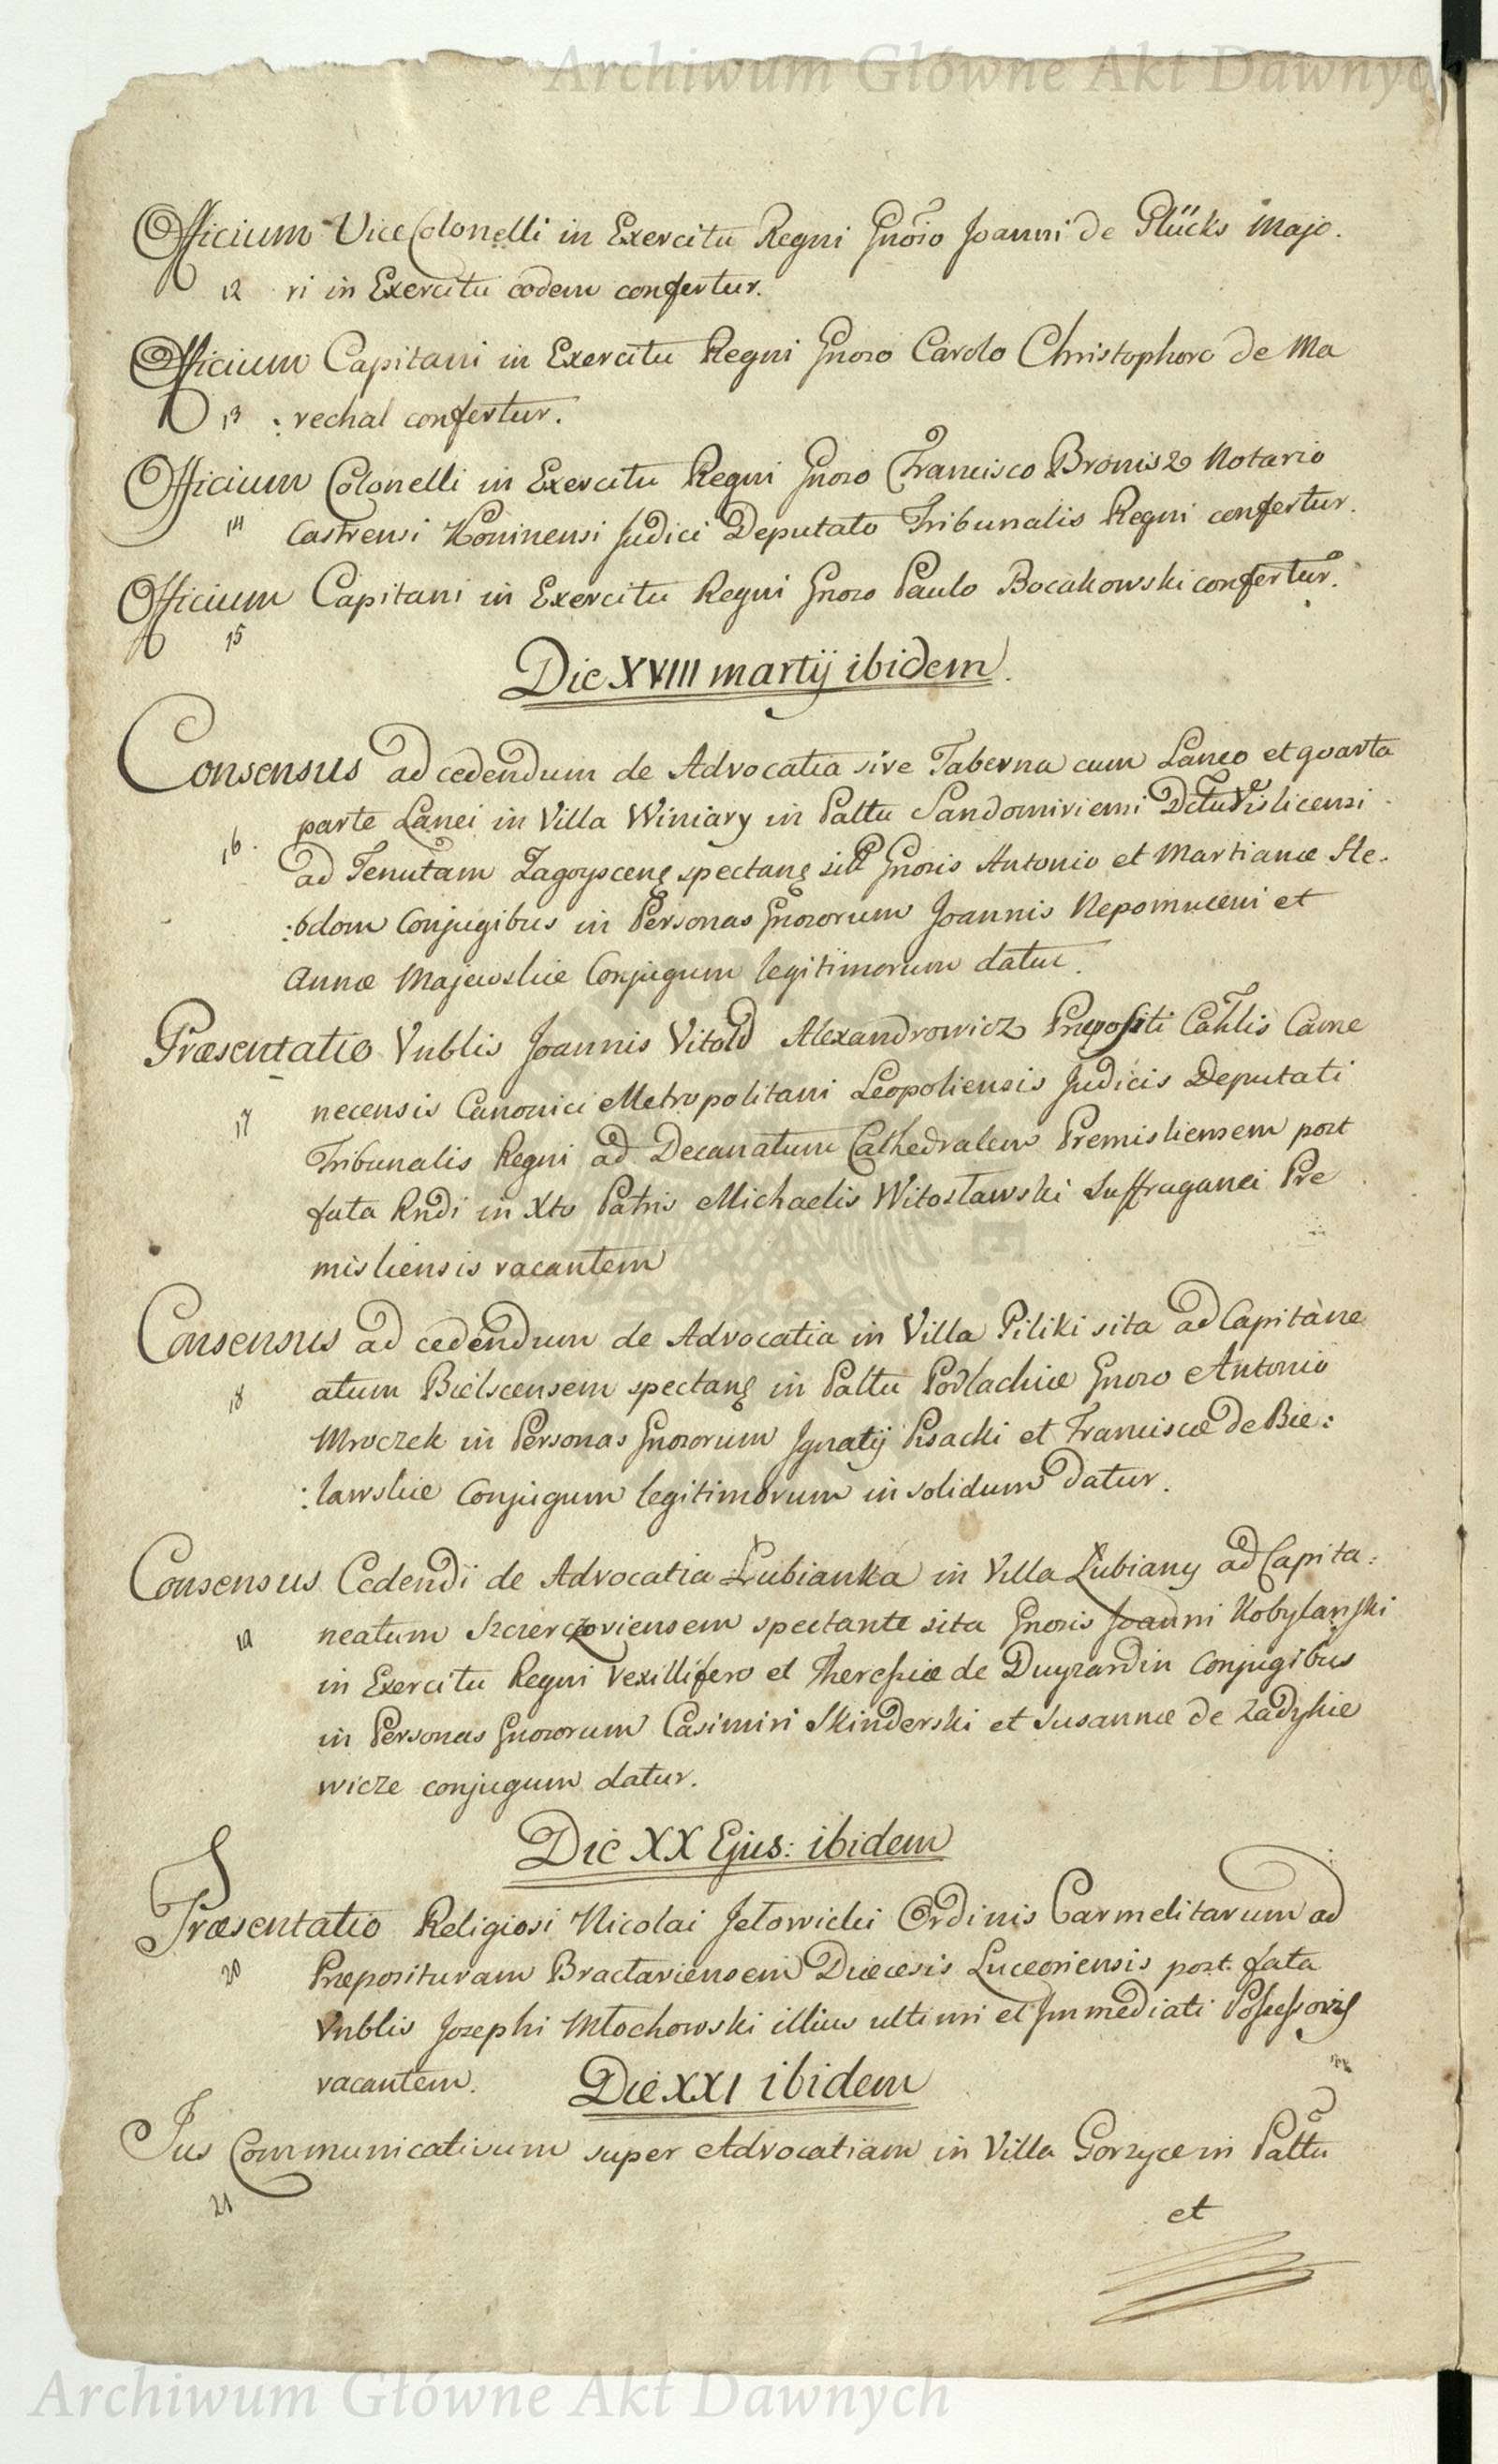 Archiwum Główne Akt Dawnych
Officium ViceColonelli in Exercitu Regni Gnoso Joanni de Plücks Majo.
12 ri in Exercitu eodem confertur.
Officium Capitani in Exercitu Regni Gnoso Carolo Christophoro de Ma
13 : rechal confertur.
Officium Colonelli in Exercitu Regni Gnoso Francisco Bronisz Notario
14 Castrensi Koninensi Judici Deputato Tribunalis Regni confertur.
Officium Capitani in Exercitu Regni Gnoso Paulo Bocakowski confertur.
15
Die XVIII martij ibidem.
Consensus ad cedendum de Advocatia sive Taberna cum Laneo et quarta
parte Lanei in Villa Winiary in Palttu Sandomiriensi Dctu Vislicensi
16. ad Tenutam Zagoysceng spectang Gnosis Antonio et Martianæ Ste-
:bdom Conjugibus in Personas Gnosorum Joannis Nepomuceni et
Annæ Majewskie Conjugum legitimorum datur.
Præsentatio Vnblis Joannis Vitold Alexandrowicz Præpositi Cahlis Came
17 necensis Canonici Metropolitani Leopoliensis Judicis Deputati
Tribunalis Regni ad Decanatum Cathedralem Premisliensem post
fata Rndi in Xto Patris Michaelis Witosławski Suffraganei Pre
misliensis vacantem
Consensus ad cedendum de Advocatia in Villa Piliki sita ad Capitane
18 atum Bielscensem spectang in Palttu Podlachiæ Gnoso Antonio
Mroczek in Personas Gnosorum Ignatij Pisacki et Franciscæ de Bie:
:lawskie Conjugum legitimorum in solidum datur.
Consensus Cedendi de Advocatia Łubianka in Villa Łubiany ad Capita:
19 neatum Szczerczoviensem spectante sita Gnosis Joanni Kobylanski
in Exercitu Regni Vexillifero et Theresiæ de Duyzardin Conjugibus
in Personas Gnosorum Casimiri Skinderski et Susannæ de Zadykie
wicze conjugum datur.
Die XX Ejus: ibidem
Præsentatio Religiosi Nicolai Jełowicki Ordinis Carmelitarum ad
20 Præposituram Bractaviensem Diœcesis Luceoriensis post fata
Vnblis Josephi Młochowski illius ultimi et Immediati Possessoris
vacantem. Die XXI ibidem
Jus Communicativum super Advocatiam in Villa Gorzyce in Palttu
21
et
Archiwum Główne Akt Dawnych